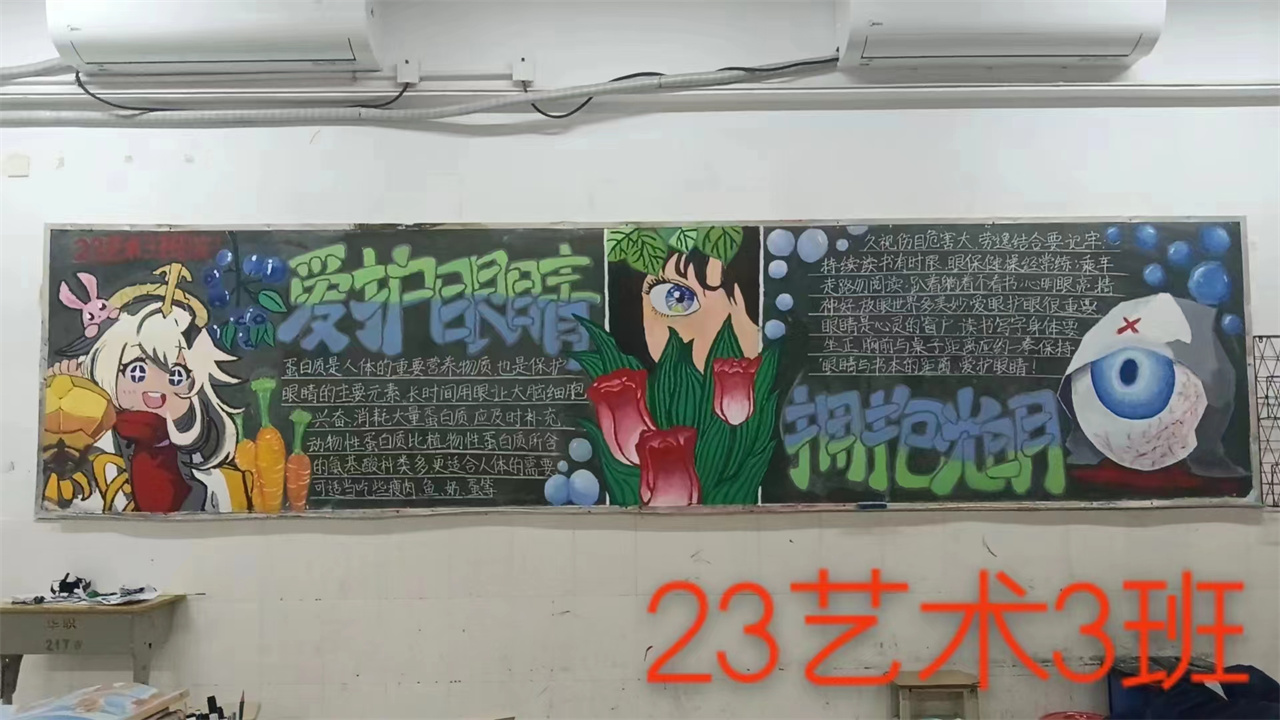 23艺术3班
爱护眼睛
蛋白质是人体的重要营养物质,也是保护
眼睛的主要元素,长时间用眼让大脑细胞
兴奋,消耗大量蛋白质,应及时补充.
动物性蛋白质比植物性蛋白质所含
的氨基酸种类多,更适合人体的需要
可适当吃些瘦肉、鱼、奶、蛋等
久视伤目危害大,劳逸结合要记牢:
持续读书有时限,眼保健操经常练;乘车
走路勿阅读,趴着躺着不看书;心明眼亮精
神好,放眼世界多美妙,爱眼护眼很重要
眼睛是心灵的窗户,读书写字身体要
坐正,胸前与桌子距离应约一拳,保持
眼睛与书本的距离,爱护眼睛!
拥抱光明
华职
217
23艺术3班